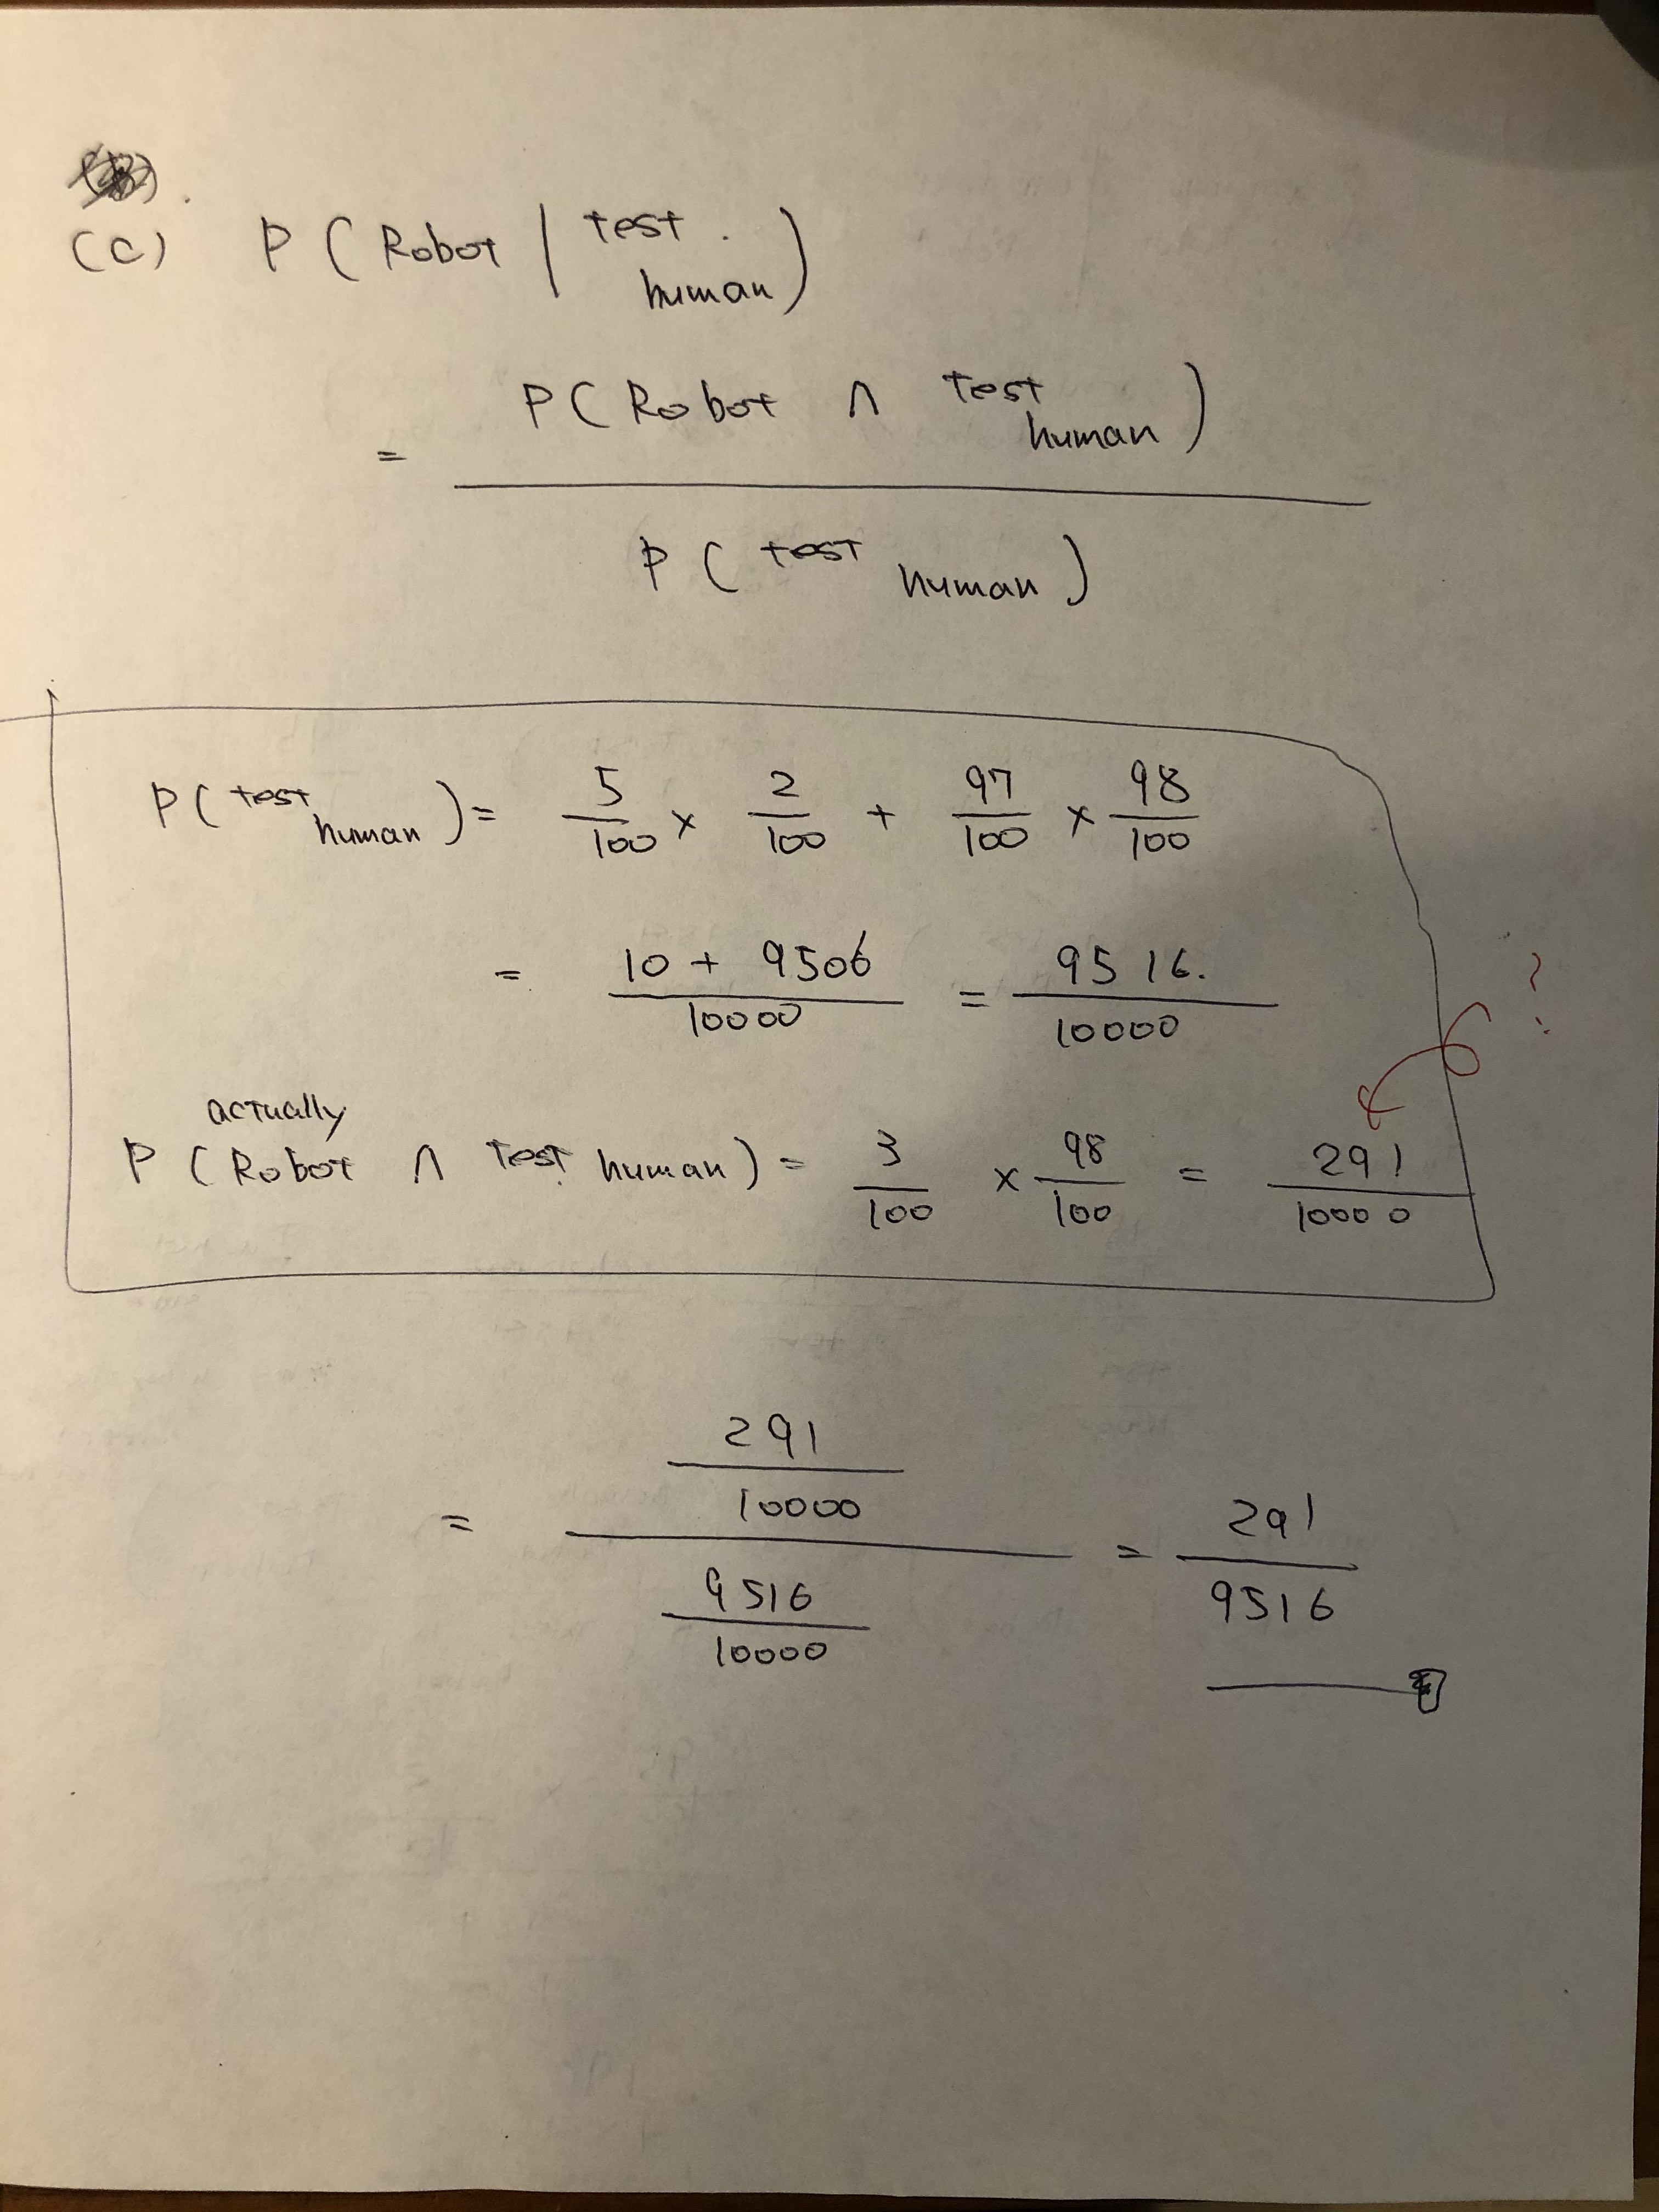 (C) P ( Robot | test. human )
= P ( Robot ∩ test human )
P ( test human )
P ( test human ) = 5/100 × 2/100 + 97/100 × 98/100
= 10 + 9506 / 10000 = 9516. / 10000
?
actually
P ( Robot ∩ test human ) = 3/100 × 98/100 = 291/10000
= 291/10000 / 9516/10000 = 291/9516